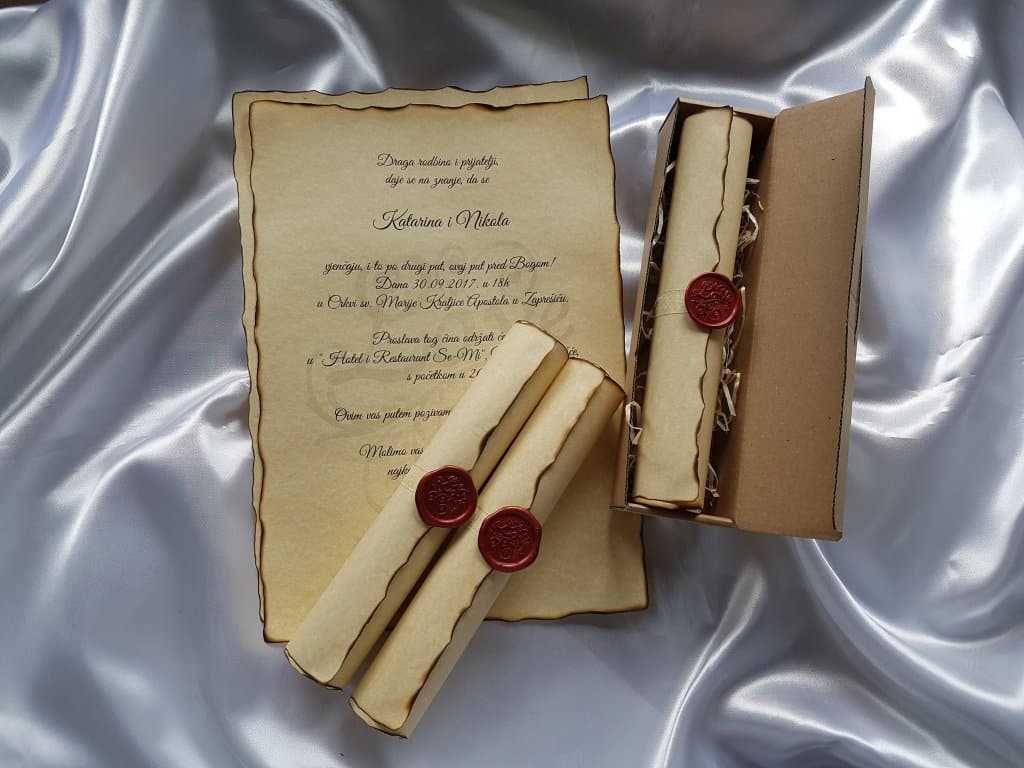 Draga rodbino i prijatelji,
daje se na znanje, da se
Katarina i Nikola
vjenčaju, i to po drugi put, ovaj put pred Bogom!
Dana 30.09.2017. u 18h
u Crkvi sv. Marije Kraljice Apostola u Zaprešiću.
Proslava tog čina održati
u "Hotel i Restaurant Se-Mi",
s početkom u
Ovim vas putem
Molimo vas